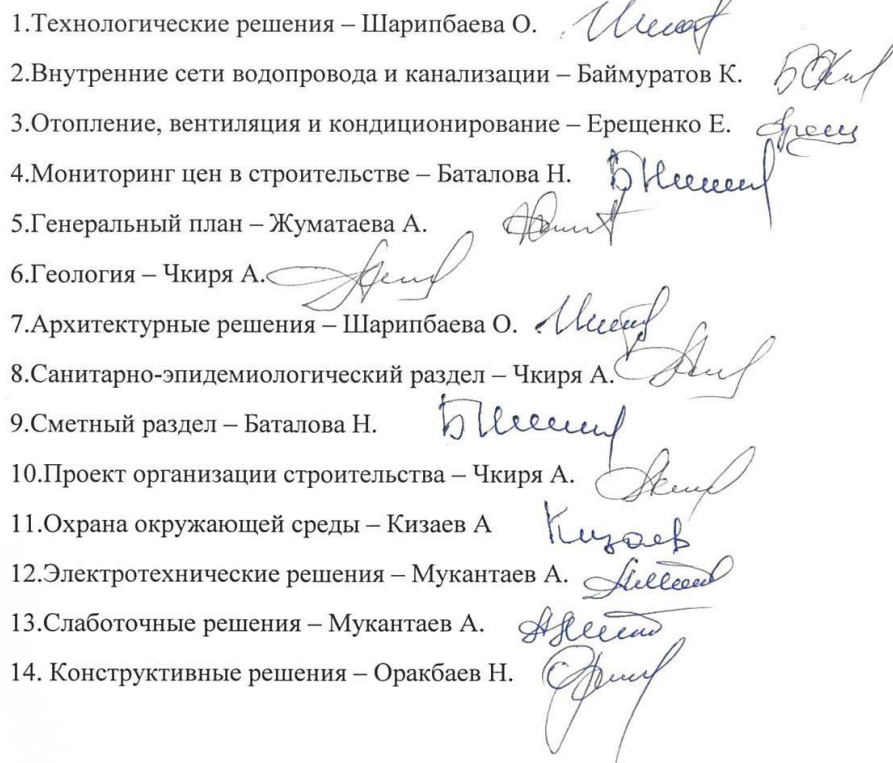 1.Технологические решения – Шарипбаева О.
2.Внутренние сети водопровода и канализации – Баймуратов К.
3.Отопление, вентиляция и кондиционирование – Ерещенко Е.
4.Мониторинг цен в строительстве – Баталова Н.
5.Генеральный план – Жуматаева А.
6.Геология – Чкиря А.
7.Архитектурные решения – Шарипбаева О.
8.Санитарно-эпидемиологический раздел – Чкиря А.
9.Сметный раздел – Баталова Н.
10.Проект организации строительства – Чкиря А.
11.Охрана окружающей среды – Кизаев А Кизаев
12.Электротехнические решения – Мукантаев А.
13.Слаботочные решения – Мукантаев А.
14. Конструктивные решения – Оракбаев Н.